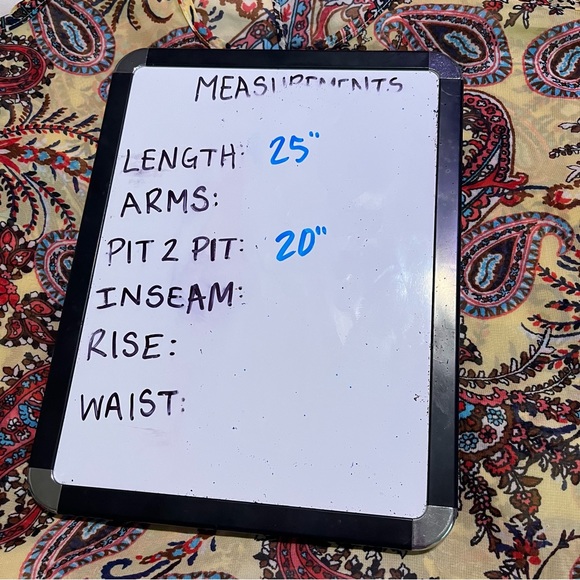 MEASUREMENTS
LENGTH: 25"
ARMS:
PIT 2 PIT: 20"
INSEAM:
RISE:
WAIST: